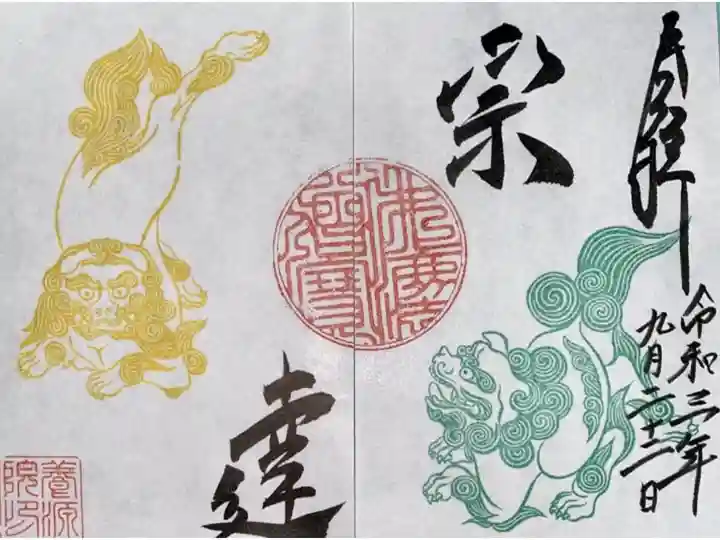 令和三年
九月二十二日
宗
達
養源
院印